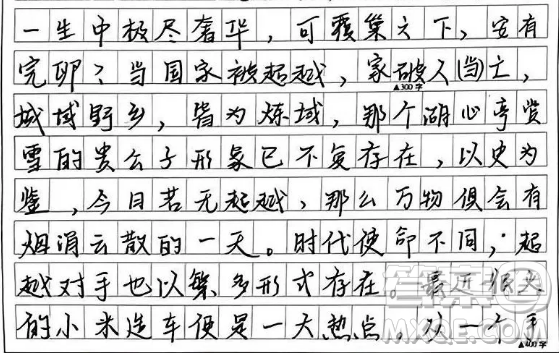 一生中极尽奢华，可覆巢之下，安有
完卵？当国家被超越，家破人亡，
▲300字
城域野乡，皆为炼域，那个湖心亭赏
雪的贵公子形象已不复存在，以史为
鉴，今日若无超越，那么万物俱会有
烟涓云散的一天。时代使命不同，超
越对手也以繁多形式存在。最近很火
的小米造车便是一大热点，从一个手
▲400字